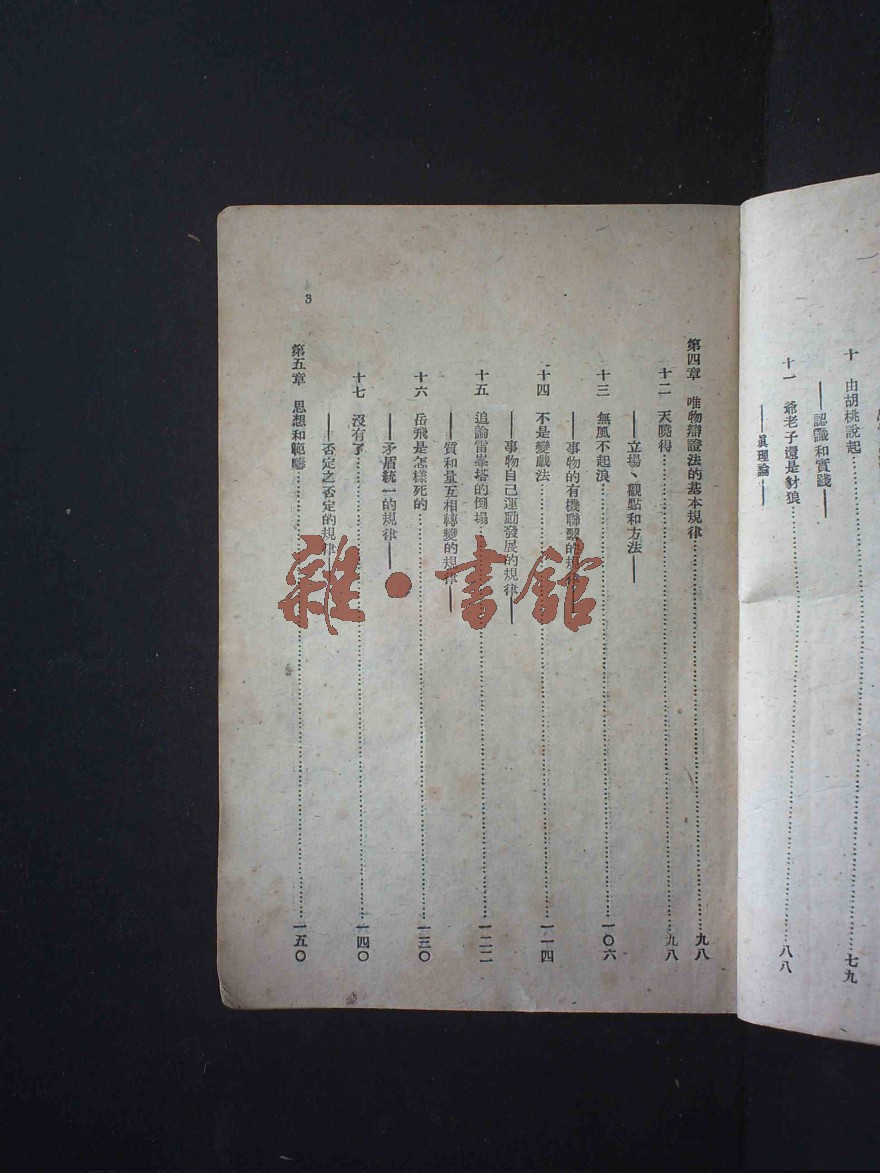 十　由胡桃說起…………七九
——認識和實踐——
十一　爺老子還是豺狼…………八八
——眞理論——
第四章　唯物辯證法的基本規律…………九八
十二　天曉得…………九八
——立場、觀點和方法——
十三　無風不起浪…………一〇六
——事物的有機聯繫的規律——
十四　不是變戲法…………一一四
——事物自己運動發展的規律——
十五　追論雷峯塔的倒塌…………一二二
——質和量互相轉變的規律——
十六　岳飛是怎樣死的…………一三〇
——矛盾統一的規律——
十七　沒有了…………一四〇
——否定之否定的規律——
第五章　思想和範疇…………一五〇
3
雜·書館